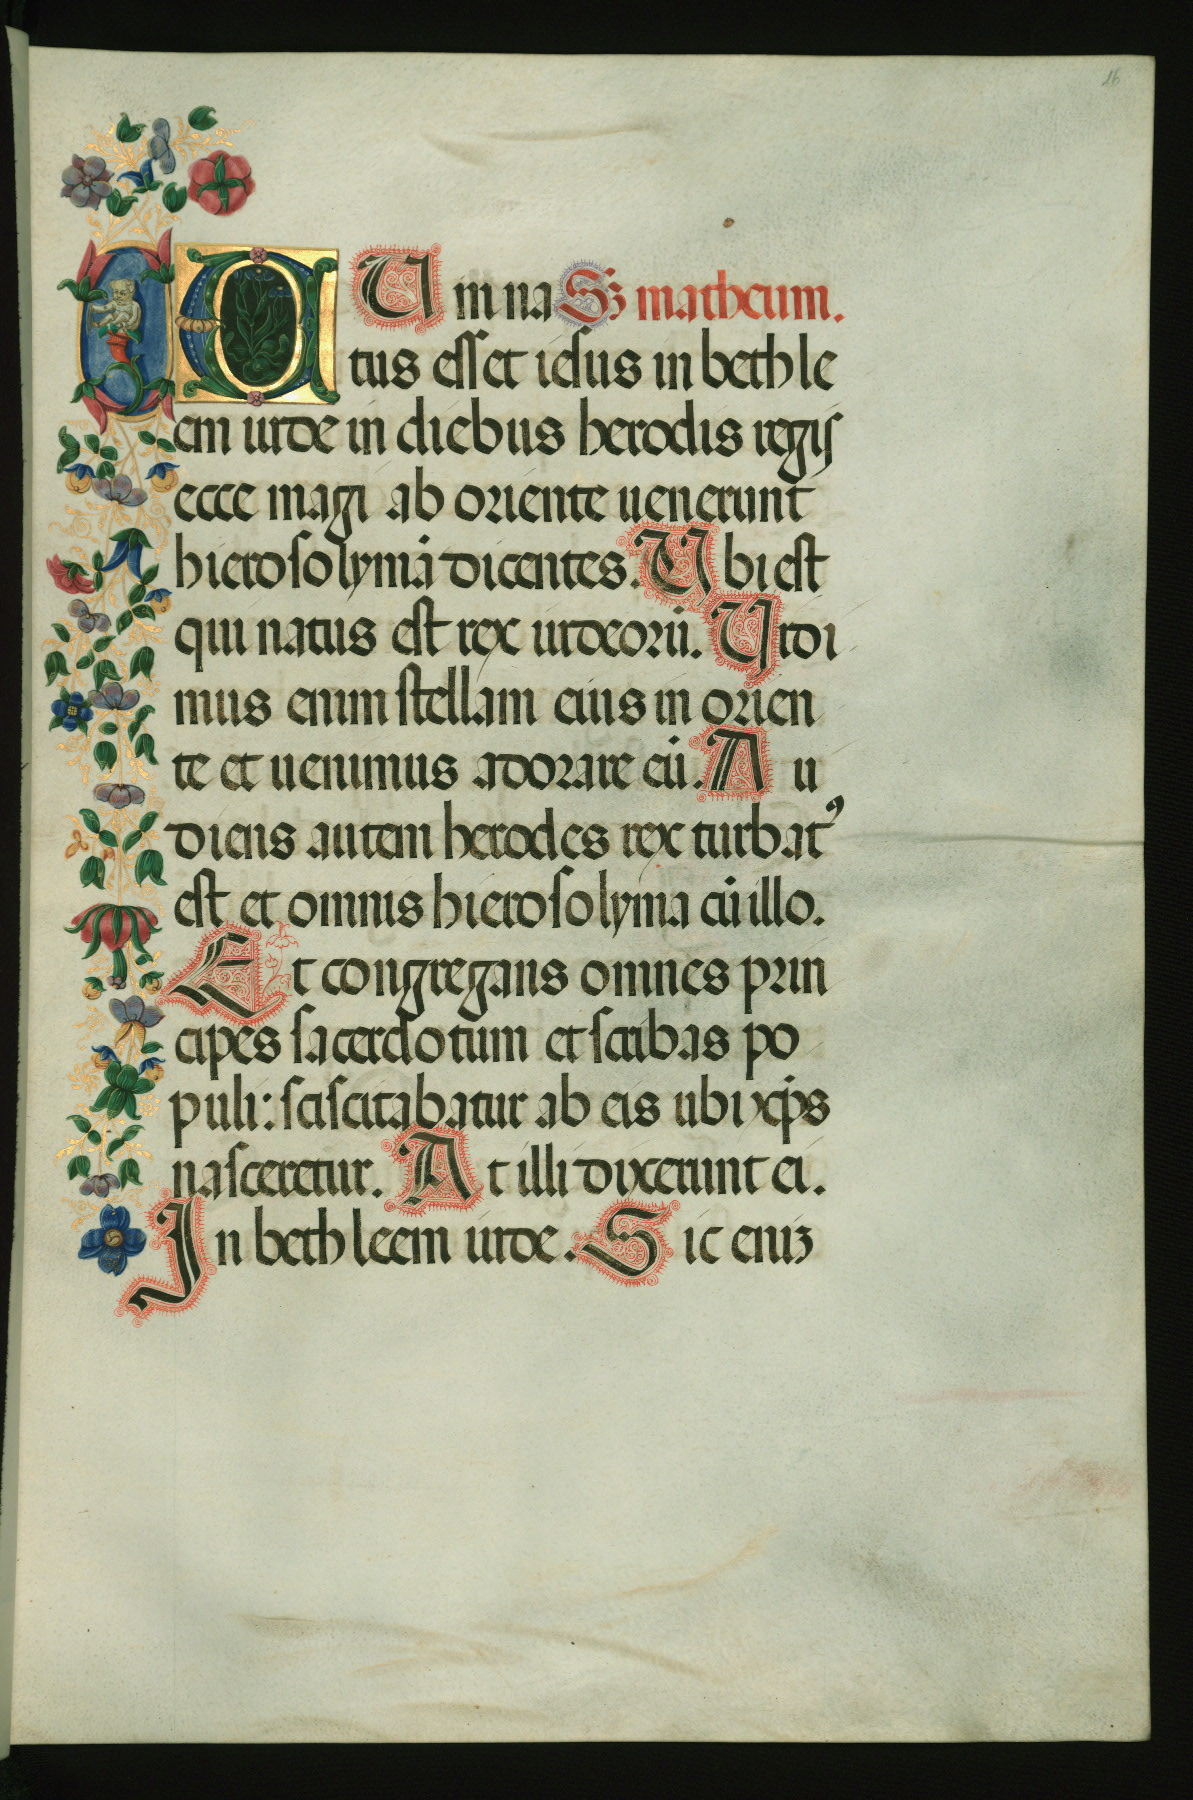 16
CUm na S3 matheum.
tus esset iesus in bethle
em iude in diebus herodis regis
ecce magi ab oriente uenerunt
hierosolymā dicentes. Ubi est
qui natus est rex iudeorū. Uidi
mus enim stellam eius in orien
te et uenimus adorare eū. Au
diens autem herodes rex turbatꝰ
est et omnis hierosolyma cū illo.
Et congregans omnes prin
cipes sacerdotum et scribas po
puli: sciscitabatur ab eis ubi xp̄s
nasceretur. At illi dixerunt ei.
In bethleem iude. Sic eniꝫ